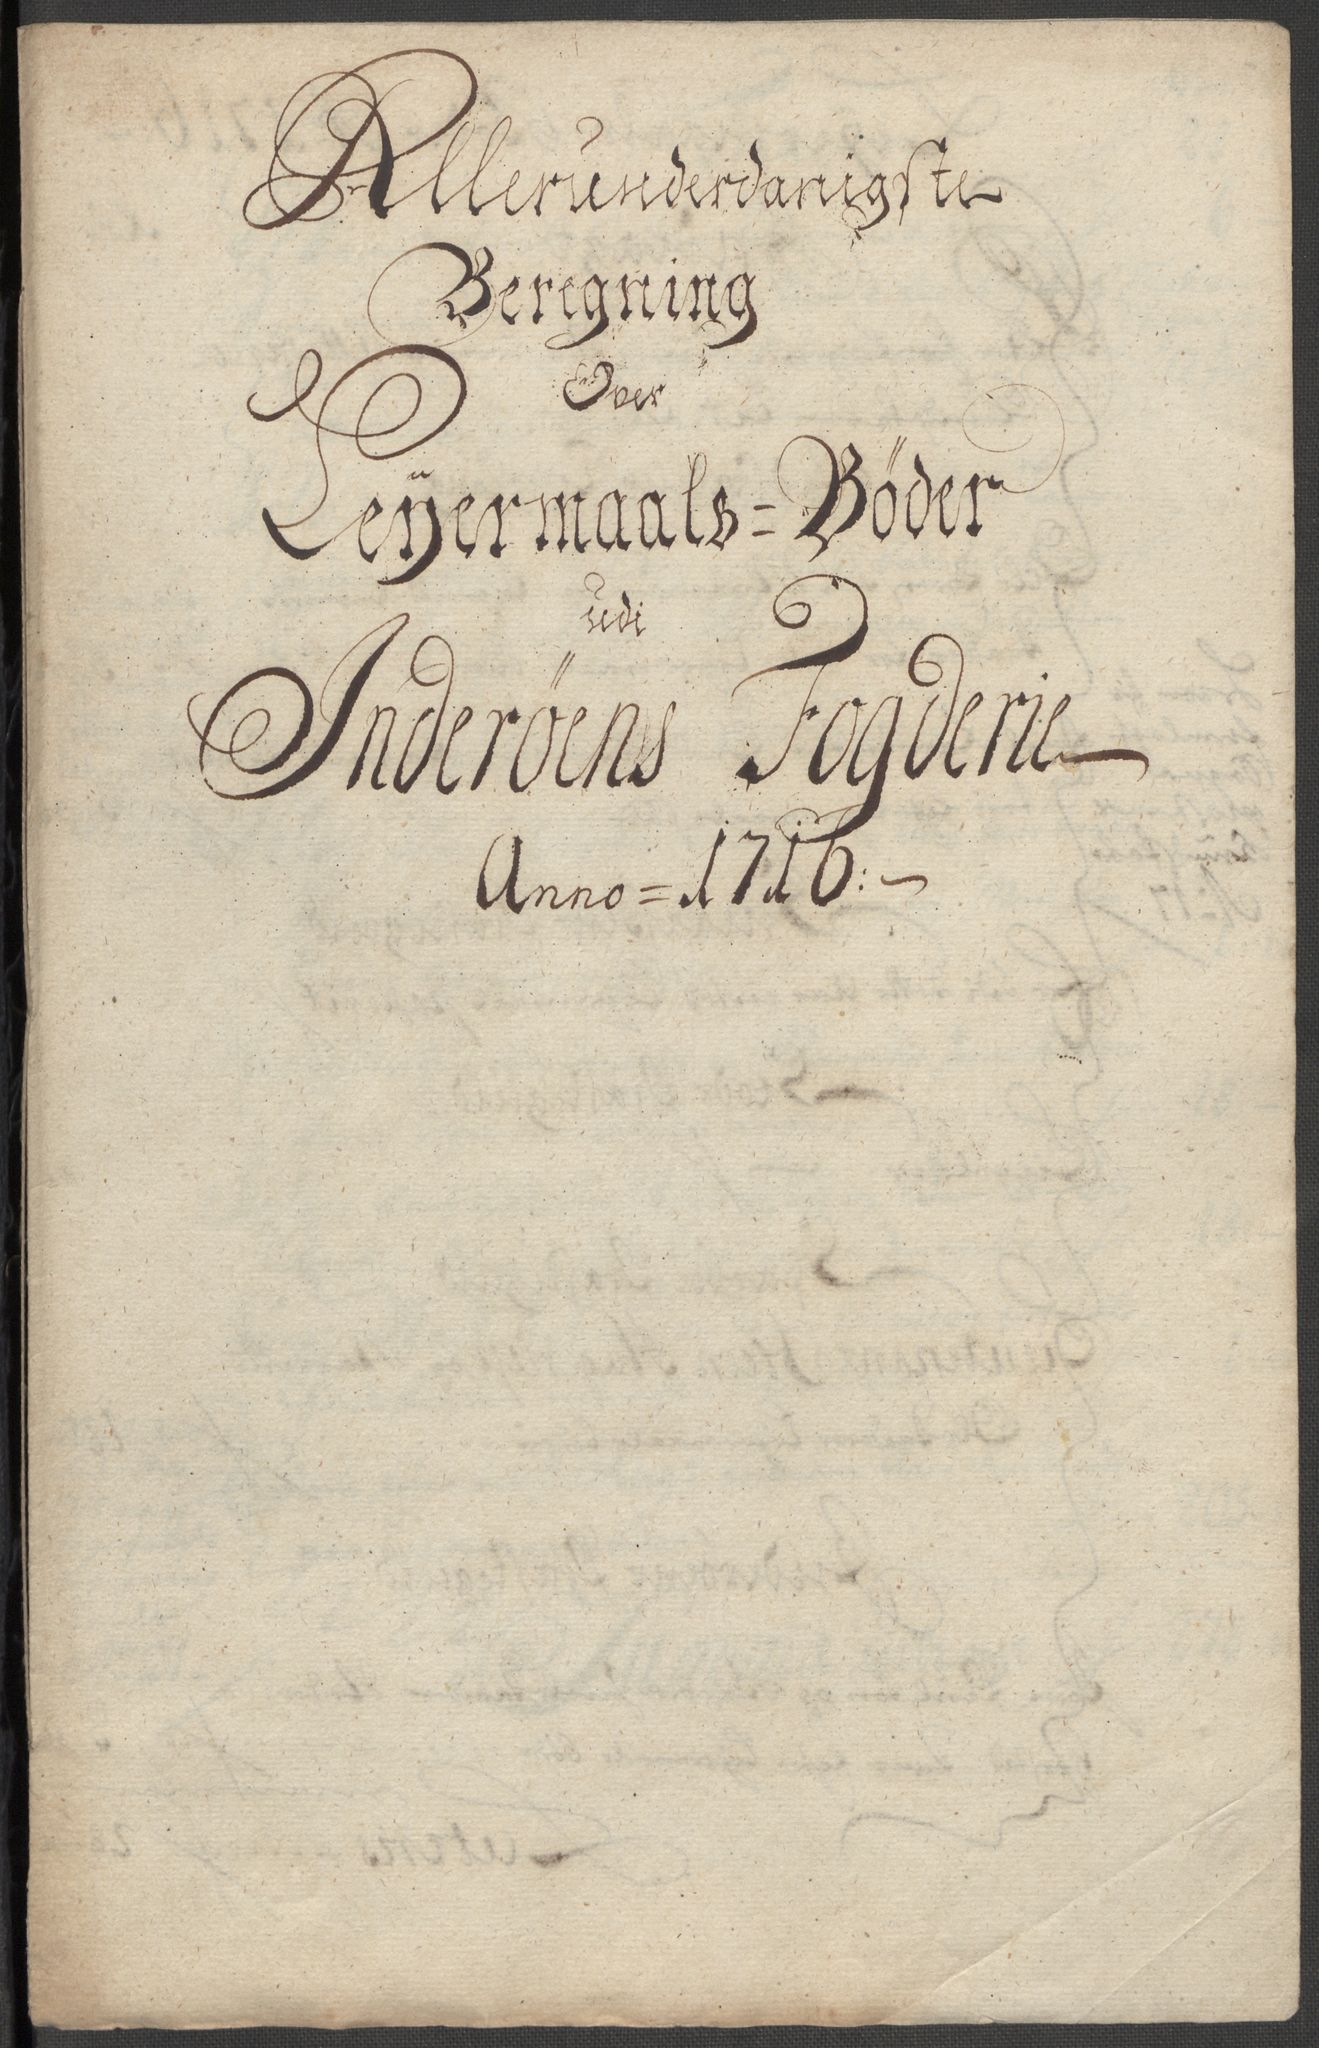 Allerunderdanigste
Beregning
Over
Leÿermaals=Böder
udi
Inderöens Fogderie
Anno=1716: